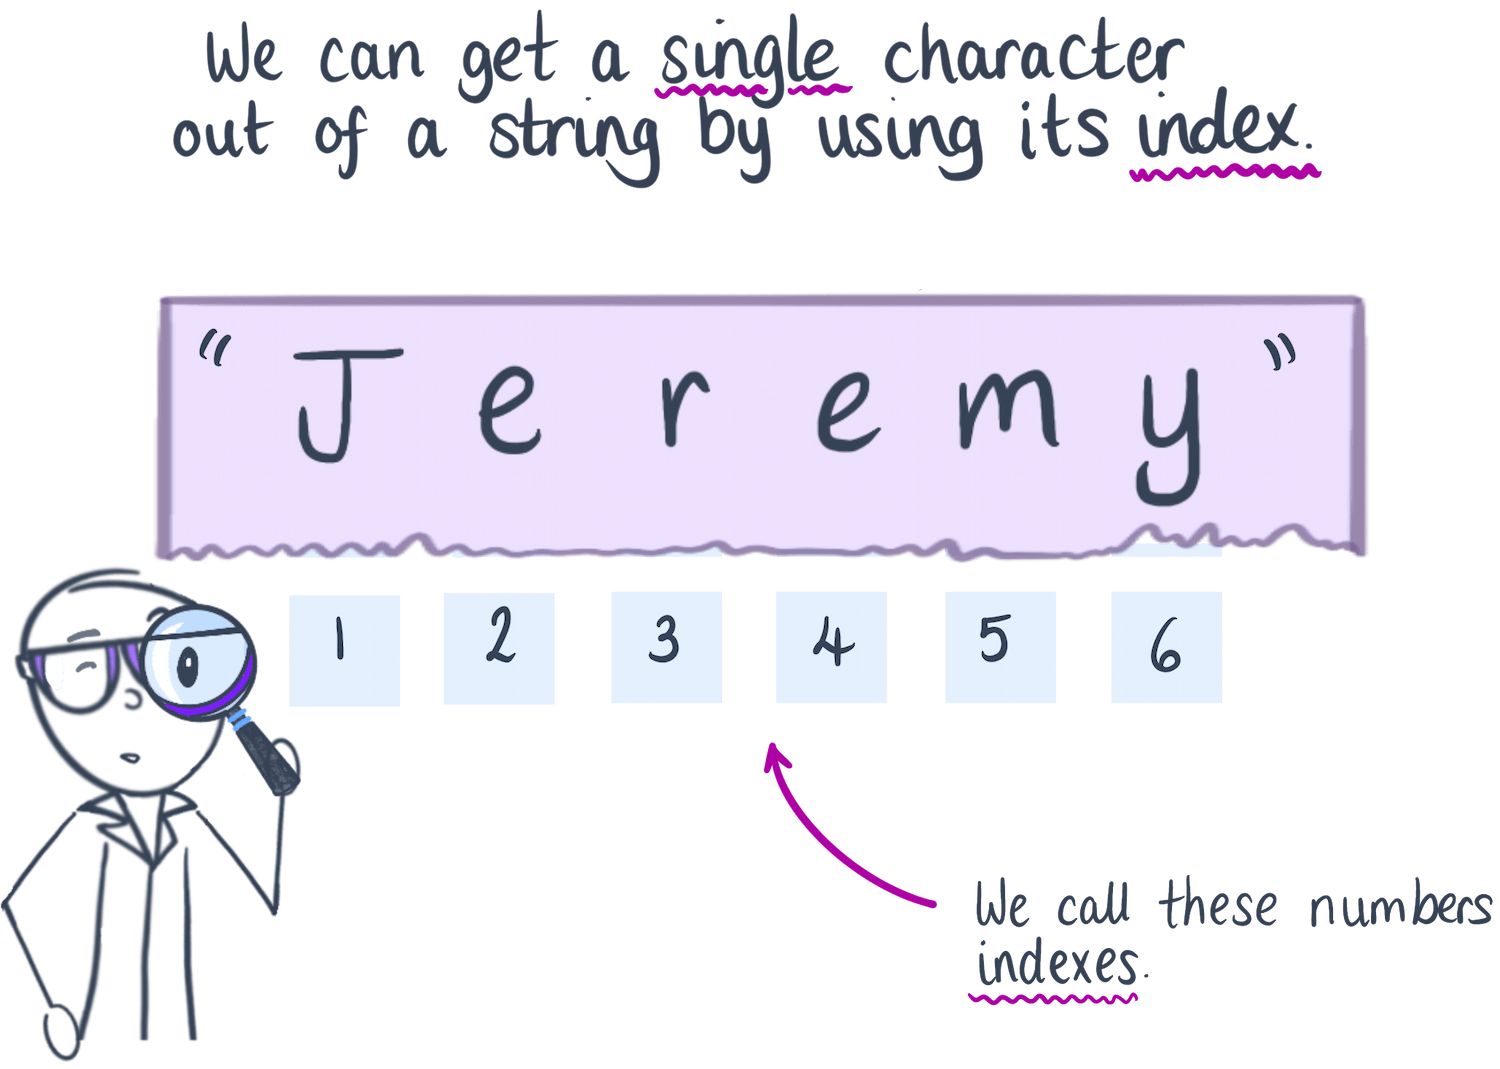 We can get a single character
out of a string by using its index.
“ J e r e m y ”
1 2 3 4 5 6
We call these numbers
indexes.